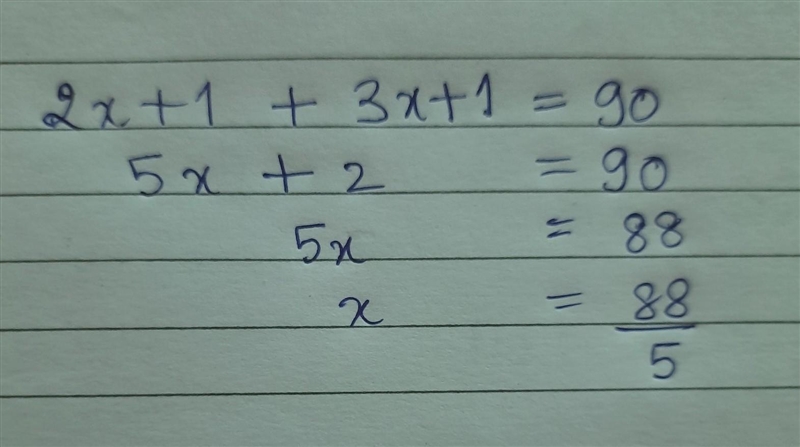 2x+1 + 3x+1 = 90
5x + 2 = 90
5x = 88
x = 88
5